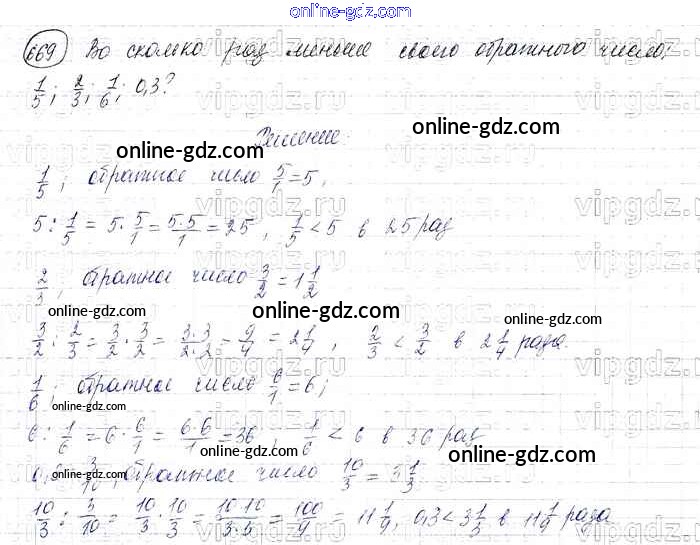 online-gdz.com
669 Во сколько раз меньше своего обратного число:
1/5; 2/3; 1/6; 0,3?
online-gdz.com
vipgdz.ru
Решение
online-gdz.com
1/5; обратное число 5/1 = 5,
vipgdz.ru
5 : 1/5 = 5 · 5/1 = 5·5/1 = 25, 1/5 < 5 в 25 раз
2/3, обратное число 3/2 = 1 1/2
online-gdz.com
online-gdz.com
3/2 : 2/3 = 3/2 · 3/2 = 3·3/2·2 = 9/4 = 2 1/4, 2/3 < 3/2 в 2 1/4 раза.
vipgdz.ru
1/6; обратное число 6/1 = 6;
online-gdz.com
6 : 1/6 = 6 · 6/1 = 6·6/1 = 36, 1/6 < 6 в 36 раз
online-gdz.com
online-gdz.com
3/10, обратное число 10/3 = 3 1/3
10/3 : 3/10 = 10/3 · 10/3 = 10·10/3·3 = 100/9 = 11 1/9, 0,3 < 3 1/3 в 11 1/9 раза
online-gdz.com